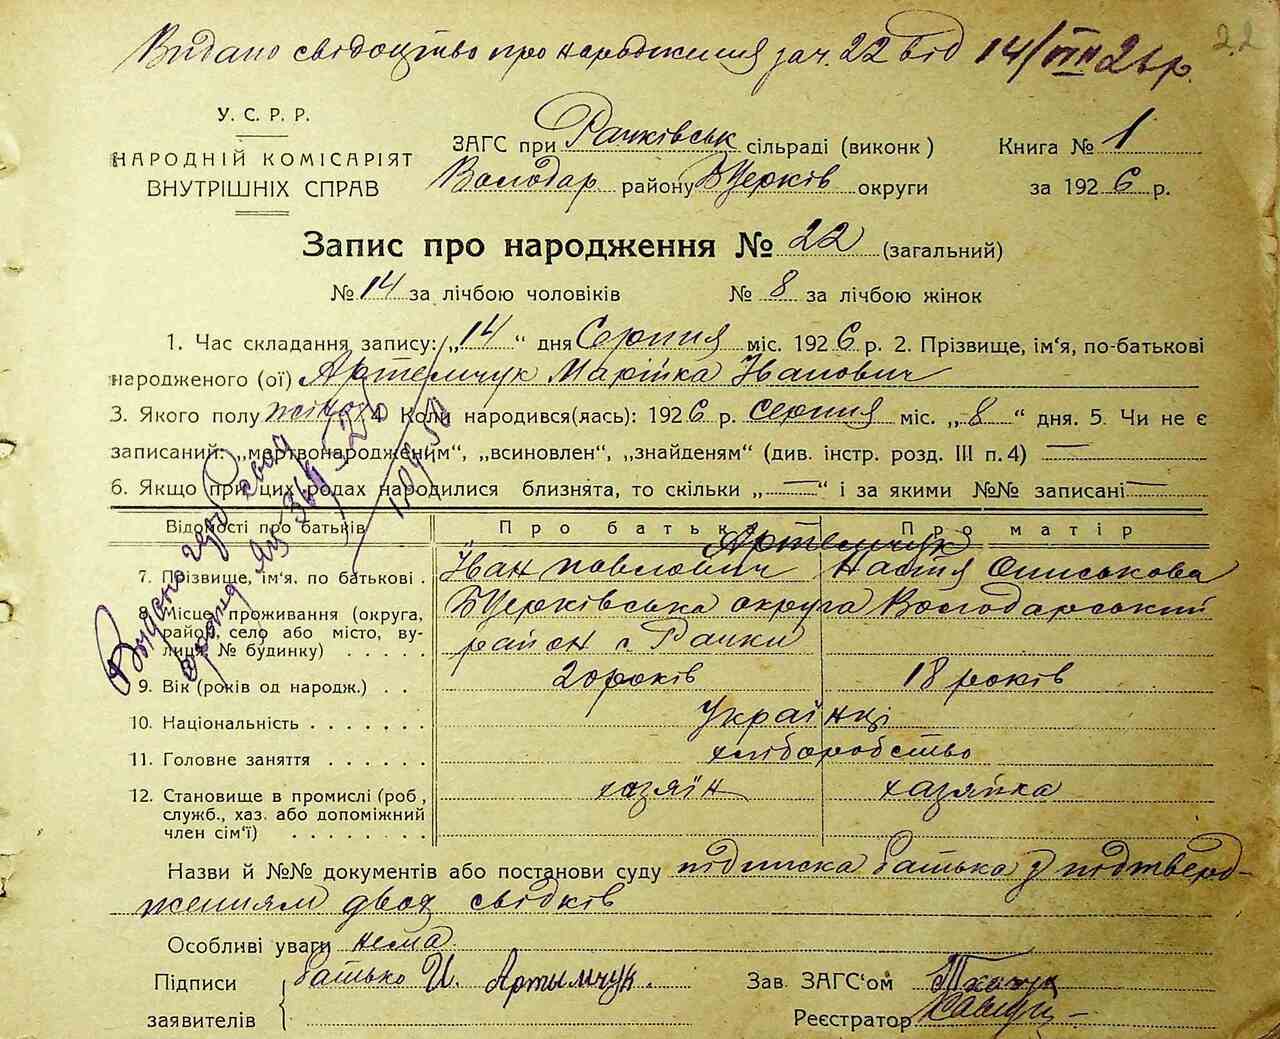 22
Видано свідоцтво про народження за ч. 22 від 14/VIII 26 р.
У. С. Р. Р.
НАРОДНІЙ КОМІСАРІЯТ
ВНУТРІШНІХ СПРАВ
ЗАГС при Рачківськ сільраді (виконк)
Володар району БЦерків округи
Книга № 1
за 1926 р.
Запис про народження № 22 (загальний)
№ 14 за лічбою чоловіків № 8 за лічбою жінок
1. Час складання запису: „14“ дня Серпня міс. 1926 р. 2. Прізвище, ім‘я, по-батькові
народженого (ої) Артемчук Марійка Іванович
3. Якого полу жіноч 4. Коли народився(лась): 1926 р. серпня міс. „8“ дня. 5. Чи не є
записаний: „мертвонародженим“, „всиновлен“, „знайденям“ (див. інстр. розд. III п. 4)
6. Якщо при цих родах народилися близнята, то скільки „—“ і за якими №№ записані —
Видано
Відомості про батьків Про батька Про матір
Артемчук
7. Прізвище, ім‘я, по батькові . Іван Павлович Настя Ониськова
8. Місце проживання (округа, БЦерківська округа Володарський
район, село або місто, ву- район с. Рачки
лиця, № будинку) . . . . .
9. Вік (років од народж.) . . 20 років 18 років
10. Національність . . . . . . . українці
11. Головне заняття . . . . . . хліборобство
12. Становище в промислі (роб., хазяїн хазяйка
служб., хаз. або допоміжний
член сім‘ї) . . . . . . . .
Назви й №№ документів або постанови суду підписка батька з підтверд-
женням двох свідків
Особливі уваги нема
Підписи батько И. Артымчук.
заявителів
Зав. ЗАГС‘ом Ткачук
Реєстратор